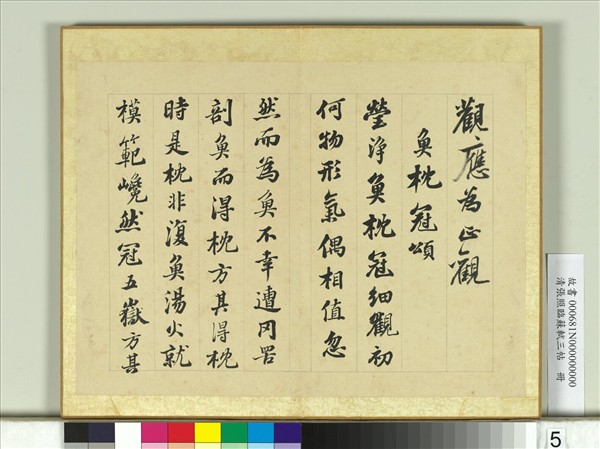 觀應為正觀
魚枕冠頌
瑩淨魚枕冠細觀初
何物形氣偶相值忽
然而為魚不幸遭罔罟
剖魚而得枕方其得枕
時是枕非復魚湯火就
模範巉然冠五嶽方其
故書000681N000000000
清張照臨蘇軾三帖 冊
5